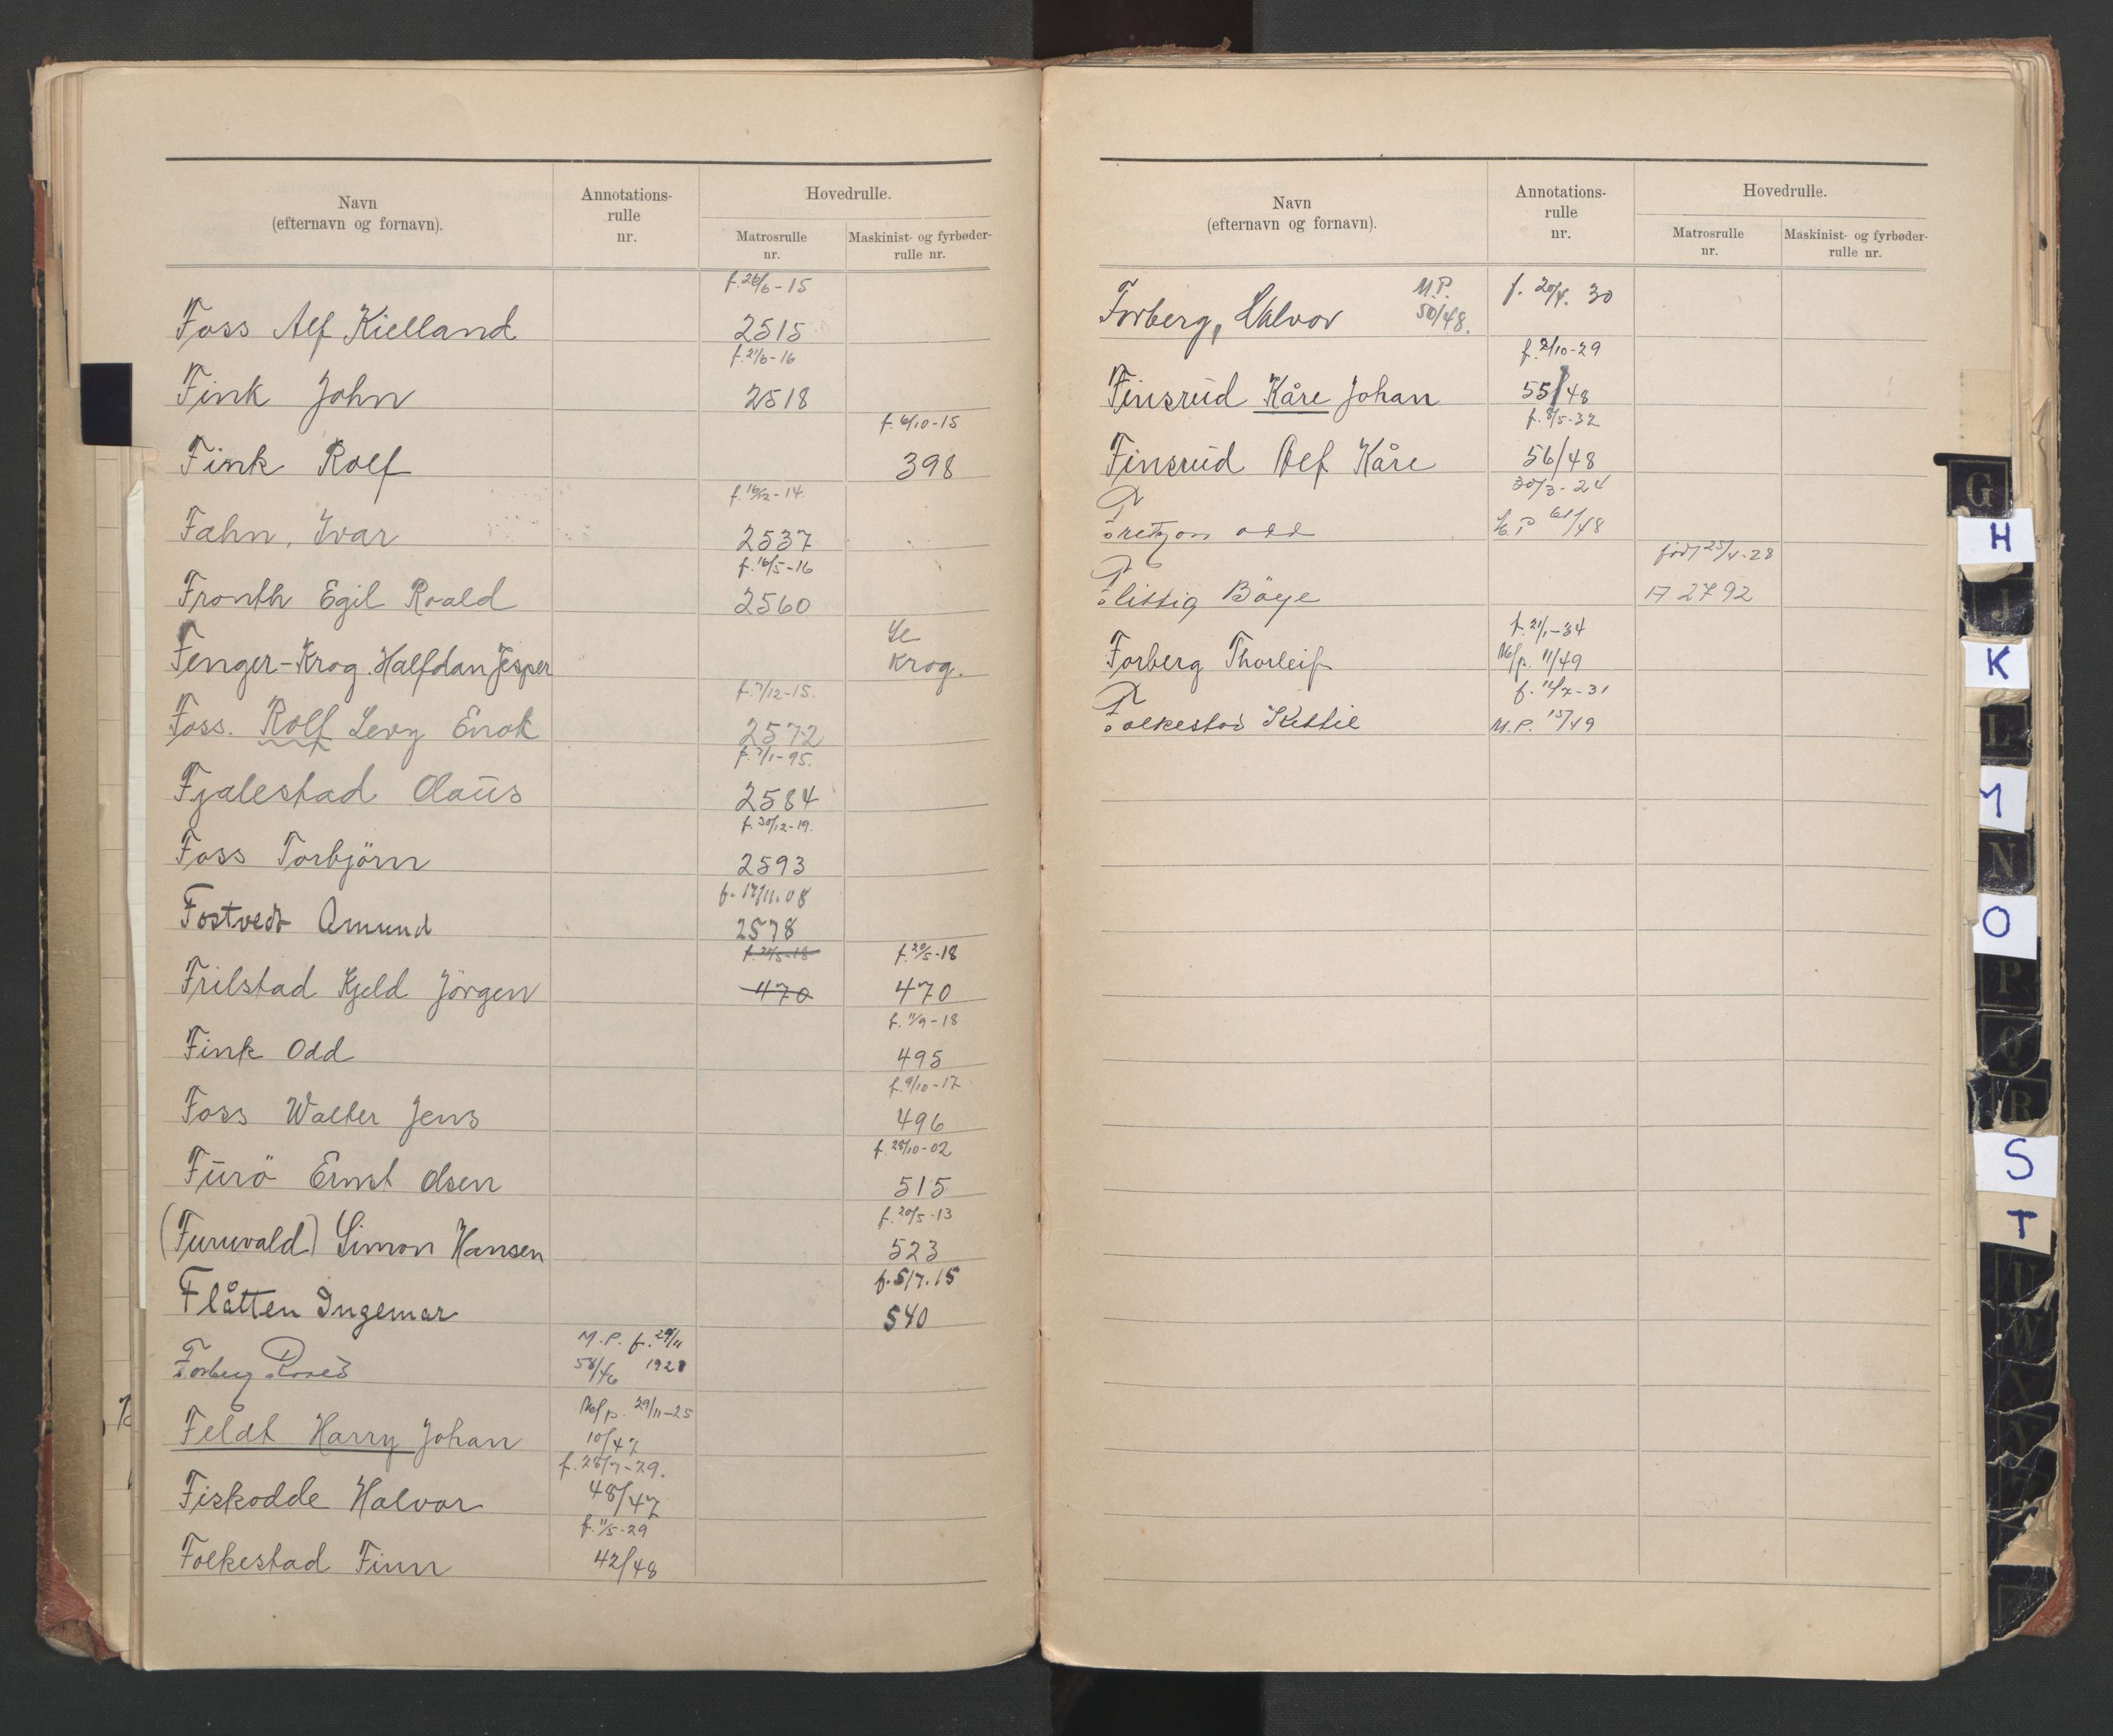 Navn
(efternavn og fornavn).
Annotations-
rulle
nr.
Hovedrulle.
Matrosrulle
nr.
Maskinist- og fyrbøder-
rulle nr.
f. 26/6-15
Foss Alf Kielland 2515
f. 21/6-16
Fink John 2518
f. 6/10-15
Fink Rolf 398
f. 16/12-14
Fæhn, Ivar 2537
f. 16/5-16
Fronth Egil Roald 2560
Se
Fenger-Krog. Halfdan Jesper Krog.
f. 7/12-15.
Foss. Rolf Levy Enok 2572
f. 7/1-95.
Fjalestad Olaus 2584
f. 30/12-19.
Foss Torbjörn 2593
f. 17/11.08
Fostvedt Amund 2578
f. 20/5-18 f. 20/5-18
Frilstad Kjeld Jörgen 470 470
f. 11/9-18
Fink Odd 495
f. 9/10-17
Foss Walter Jens 496
f. 28/10-02
Furö Ernst Olsen 515
f. 20/5-13
(Furuvald) Simon Hansen 523
f. 5/7.15
Flåtten Ingemar 540
M.P. f. 29/11
Forberg 58/46 1928
M/p. 29/11-25
Feldt Harry Johan 10/47
f. 28/7-29.
Fiskodde Halvor 48/47
f. 11/5-29
Folkestad Finn 42/48
Navn
(efternavn og fornavn).
Annotations-
rulle
nr.
Hovedrulle.
Matrosrulle
nr.
Maskinist- og fyrbøder-
rulle nr.
M.P. f. 20/4. 30
Forberg, Halvor 50/48.
f. 2/10-29
Finsrud Kåre Johan 55/48
f. 8/5-32
Finsrud Alf Kåre 56/48
30/3-24
Odd 61/48
født 25/4-28
Flittig Böye A 2792
f. 21/1-34
Forberg Thorleif M/p. 11/49
f. 12/7-31
Folkestad Kittil M.P. 157/49
G
H
J
K
L
M
N
O
P
Q
R
S
T
U
W
X
Y